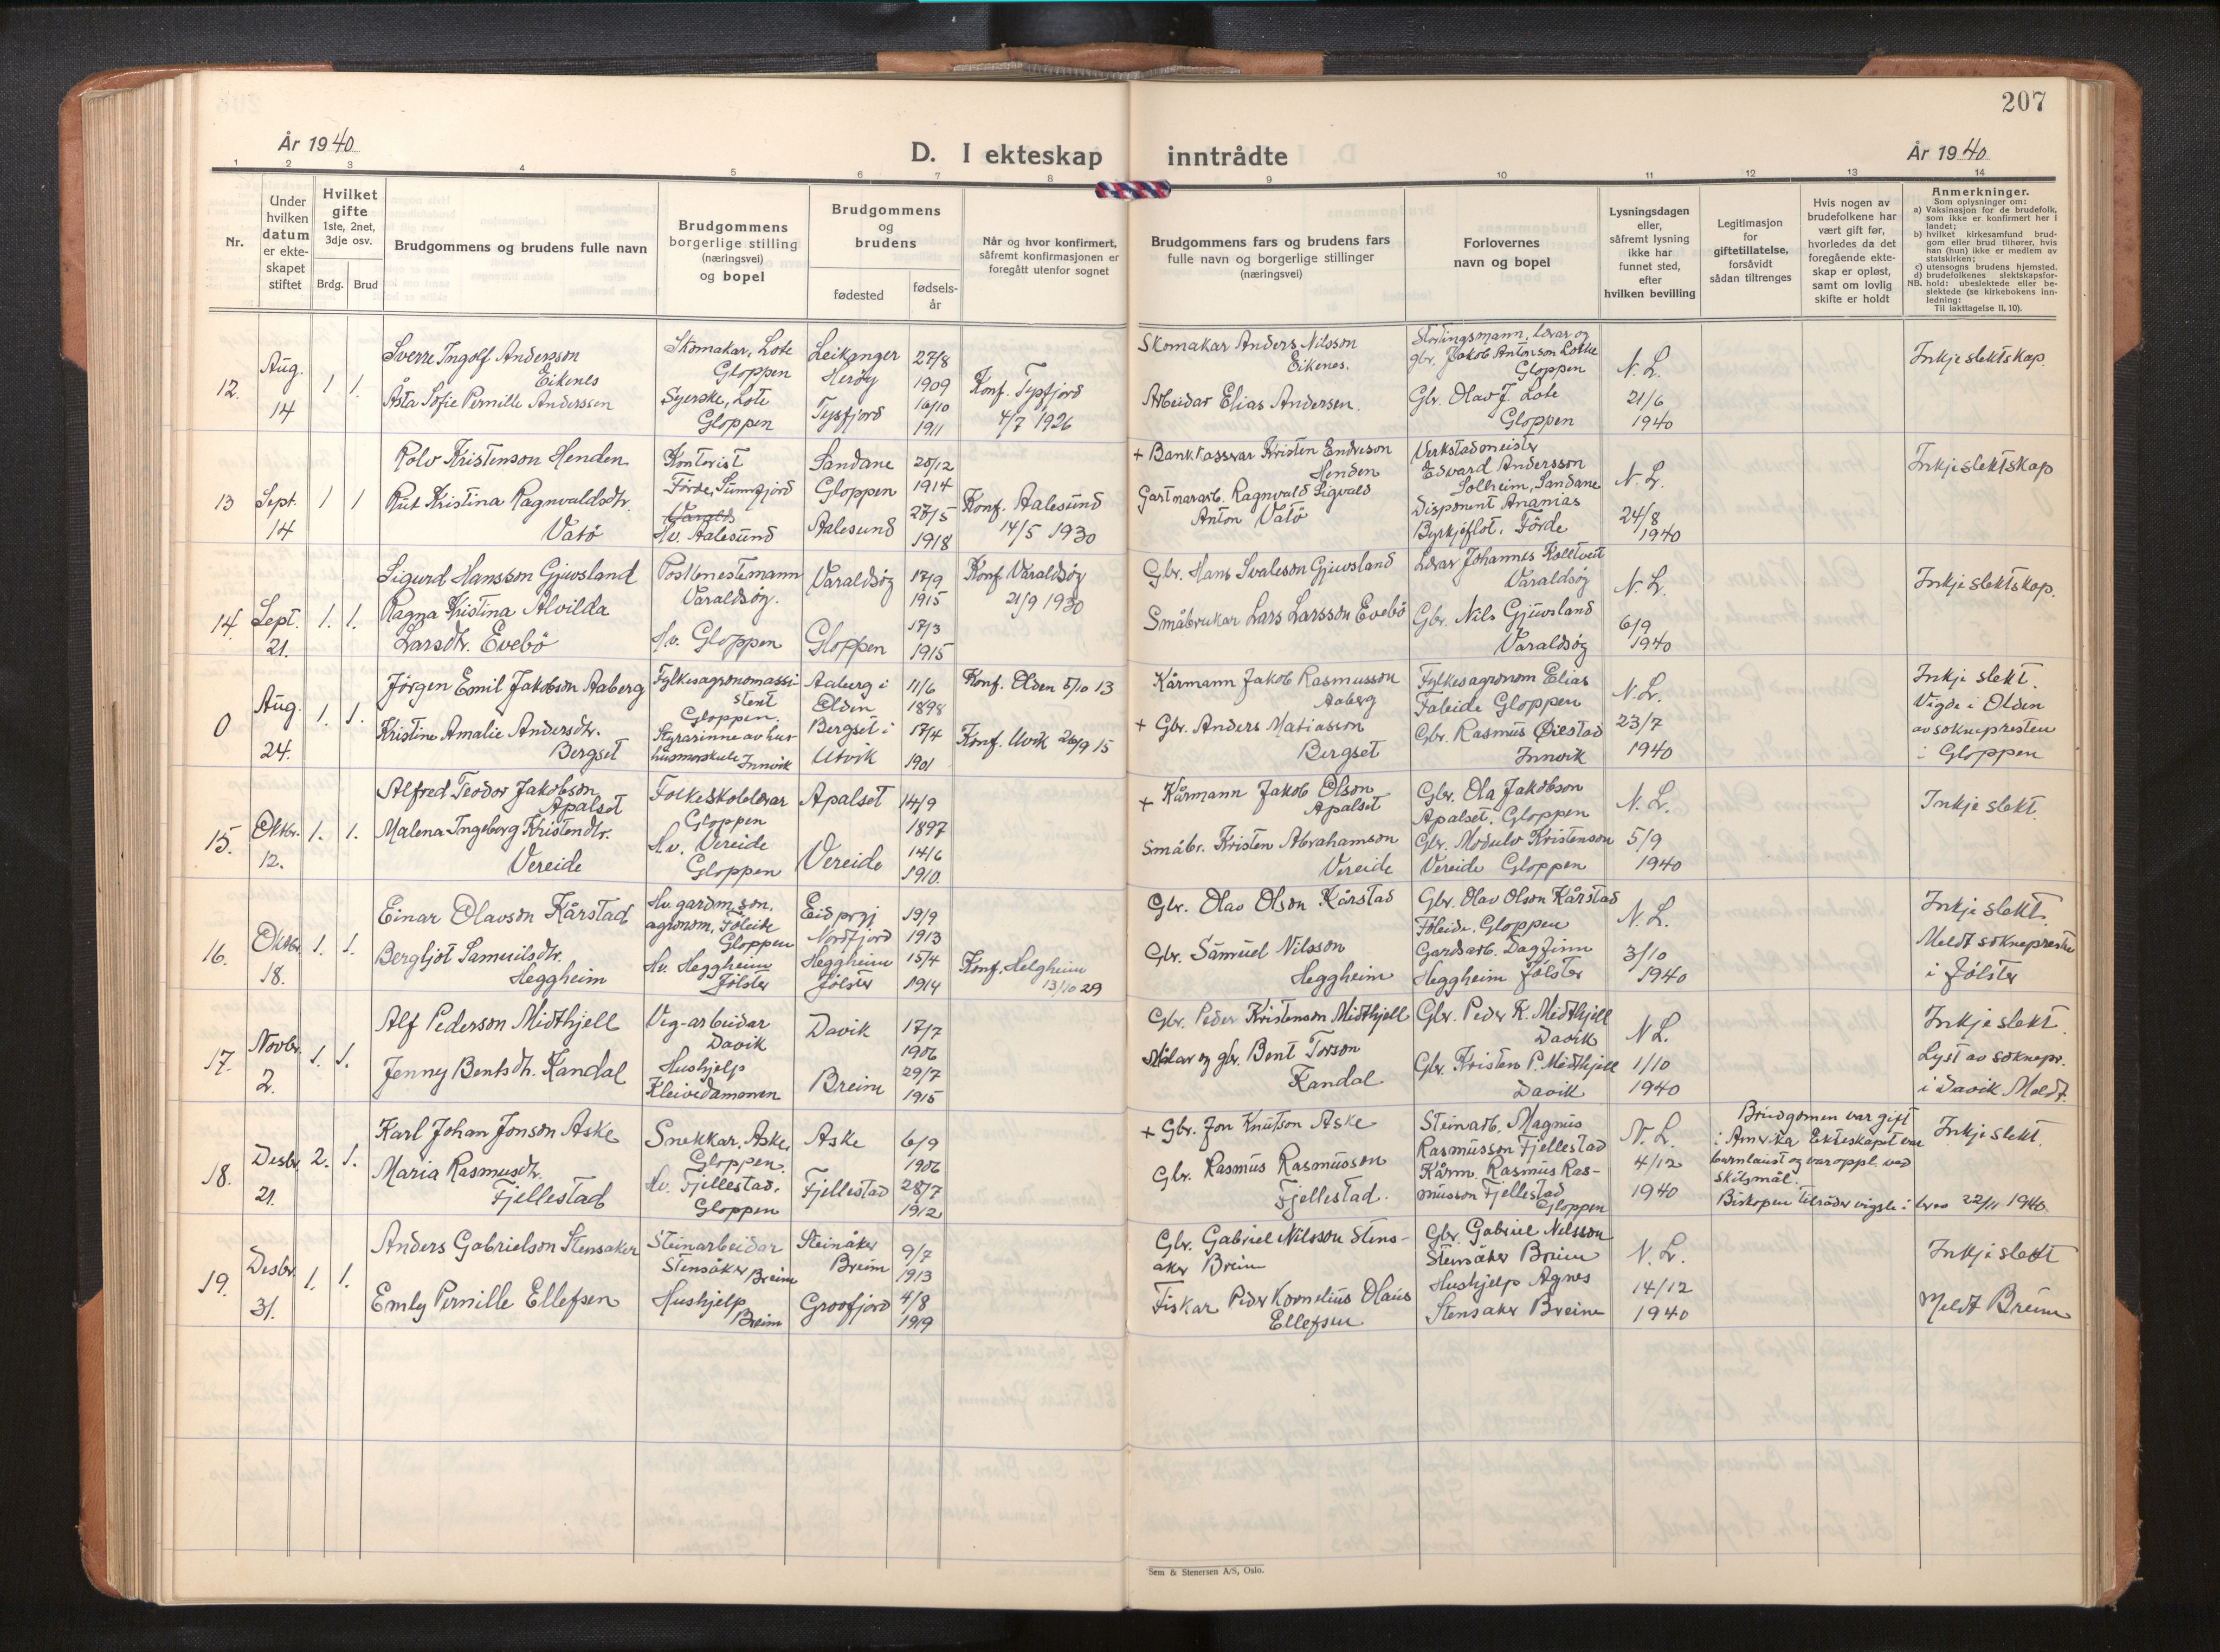 207
År 1940
D. I ekteskap inntrådte
År 1940
1 2 3 4 5 6 7 8 9 10 11 12 13 14
Nr.
Under
hvilken
datum
er ekte-
skapet
stiftet
Hvilket
gifte
1ste, 2net,
3dje osv.
Brdg. Brud
Brudgommens og brudens fulle navn
Brudgommens
borgerlige stilling
(næringsvei)
og bopel
Brudgommens
og
brudens
fødested
fødsels-
år
Når og hvor konfirmert,
såfremt konfirmasjonen er
foregått utenfor sognet
Brudgommens fars og brudens fars
fulle navn og borgerlige stillinger
(næringsvei)
Forlovernes
navn og bopel
Lysningsdagen
eller,
såfremt lysning
ikke har
funnet sted,
efter
hvilken bevilling
Legitimasjon
for
giftetillatelse,
forsåvidt
sådan tiltrenges
Hvis nogen av
brudefolkene har
vært gift før,
hvorledes da det
foregående ekte-
skap er opløst,
samt om lovlig
skifte er holdt
Anmerkninger.
Som oplysninger om:
a) Vaksinasjon for de brudefolk,
som ikke er konfirmert her i
landet;
b) hvilket kirkesamfund brud-
gom eller brud tilhører, hvis
han (hun) ikke er medlem av
statskirken;
c) utensogns brudens hjemsted.
d) brudefolkenes slektskapsfor-
NB. hold: ubeslektede eller be-
slektede (se kirkebokens inn-
ledning:
Til iakttagelse II, 10).
12.
Aug.
14
1 1.
Sverre Ingolf Andersson
Eikenes
Åsta Sofie Pernille Anderssen
Skomakar, Lote
Gloppen
Syerske, Lote
Gloppen
Leikanger
Herøy
Tysfjord
27/8
1909
16/10
1911
Konf. Tysfjord
4/7 1926
Skomakar Anders Nilsson
Eikenes.
Arbeidar Elias Andersen.
Stortingsmann, lærar og
gbr. Jakob Antonson Lothe
Gloppen
Gbr. Olav J. Lote
Gloppen
N. L.
21/6
1940
Inkje slektskap.
13
Sept.
14
1 1
Rolv Kristenson Henden
Rut Kristina Ragnvaldsdtr.
Vatö
Kontorist
Förde, Sunnfjord
Hv. Aalesund
Sandane
Gloppen
Aalesund
20/12
1914
27/5
1918
Konf. Aalesund
14/5 1930
+ Bankkasserar Kristen Endreson
Henden
Gartnararb. Ragnvald Sigvald
Anton Vatö
Verkstadmeister
Edvard Andersson
Solheim, Sandane
Disponent Ananias
Byrkjeflot, Förde
N. L.
24/8
1940
Inkje slektskap
14.
Sept.
21.
1. 1.
Sigurd Hansson Gjuvsland
Ragna Kristina Alvilda
Larsdtr. Evebö
Posttenestemann
Varaldsöy.
Hv. Gloppen
Varaldsöy
Gloppen
17/9
1915
17/3
1915
Konf. Varaldsöy
21/9 1930
Gbr. Hans Svaleson Gjuvsland
Småbrukar Lars Larsson Evebö
Lærar Johannes Kolltveit
Varaldsöy
Gbr. Nils Gjuvsland
Varaldsöy
N. L.
6/9
1940
Inkje slektskap.
0
Aug.
24.
1. 1.
Jörgen Emil Jakobson Aaberg
Kristine Amalie Andersdtr.
Bergset
Fylkesagronomassi-
stent
Gloppen.
Styrarinne av hus-
husmorskule Innvik
Aaberg i
Olden
Bergset i
Utvik
11/6
1898
17/4
1901
Konf. Olden 5/10 13
Konf. Utvik 26/9 15
Kårmann Jakob Rasmusson
Aaberg
+ Gbr. Anders Matiasson
Bergset
Fylkesagronom Elias
Faleide Gloppen
Gbr. Rasmus
Innvik
N. L.
23/7
1940
Inkje slekt.
Vigde i Olden
av soknepresten
i Gloppen
15.
Oktbr.
12.
1. 1.
Alfred Teodor Jakobson
Apalset
Malena Ingeborg Kristendtr.
Vereide
Folkeskolelærar
Gloppen
Hv. Vereide
Gloppen
Apalset
Vereide
14/9
1897
14/6
1910.
+ Kårmann Jakob Olson
Apalset
Småbr. Kristen Abrahamson
Vereide
Gbr. Ola Jakobson
Apalset. Gloppen
Gbr. Modulv Kristenson
Vereide Gloppen
N. L.
5/9
1940
Inkje slekt.
16.
Oktbr.
18.
1. 1.
Einar Olavson Kårstad
Bergljot Samuelsdtr.
Heggheim
Hv. gardm. son,
agronom, Föleide
Gloppen
Hv. Heggheim
Jölster
Eid prgj
Nordfjord
Heggheim
Jölster
19/9
1913
15/4
1914
Konf. Helgheim
13/10 29
Gbr. Olav Olson Kårstad
Gbr. Samuel Nilsson
Heggheim
Gbr. Olav Olson Kårstad
Föleide. Gloppen
Gardsarb. Dagfinn
Heggheim Jölster
N. L.
3/10
1940
Inkje slekt.
Meldt soknepresten
i Jölster
17.
Novbr.
2.
1. 1.
Alf Pederson Midthjell
Jenny Bentsdtr. Kandal
Veg-arbeidar
Davik
Hushjelp
Kleivedammen
Davik
Breim
17/7
1906
29/7
1915
Gbr. Peder Kristenson Midthjell
Målar og gbr. Bent Torson
Kandal
Gbr. Peder K. Midthjell
Davik
Gbr. Kristen P. Midthjell
Davik
N L.
1/10
1940
Inkje slekt.
Lyst av soknepr.
i Davik Meldt.
18.
Desbr.
21.
2. 1.
Karl Johan Jonson Aske
Maria Rasmusdtr.
Fjellestad
Snekkar, Aske,
Gloppen.
Hv. Fjellestad,
Gloppen
Aske
Fjellestad
6/9
1906
28/7
1912
+ Gbr. Jon Knutson Aske
Gbr. Rasmus Rasmusson
Fjellestad.
Steinarb. Magnus
Rasmusson Fjellestad
Kårm. Rasmus Ras-
musson Fjellestad
Gloppen
N. L.
4/12
1940
Brudgomen var gift
i Amerika Ekteskapet var
barnlaust og var oppl. ved
skilsmål.
Biskopen tilråder vigsle i brev 22/11 1940
Inkje slekt.
19.
Desbr.
31.
1. 1.
Anders Gabrielson Stensaker
Emly Pernille Ellefsen
Steinarbeidar
Stensåker Breim
Hushjelp
Breim
Steinåker
Breim
Grovfjord
9/7
1913
4/8
1919
Gbr. Gabriel Nilsson Stens-
aker Breim
Fiskar Peder Kornelius Olaus
Ellefsen
Gbr. Gabriel Nilsson
Stensåker Breim
Hushjelp Agnes
Stensaker Breim
N. L.
14/12
1940
Inkje slekt
Meldt Breim
Sem & Stenersen A/S, Oslo.